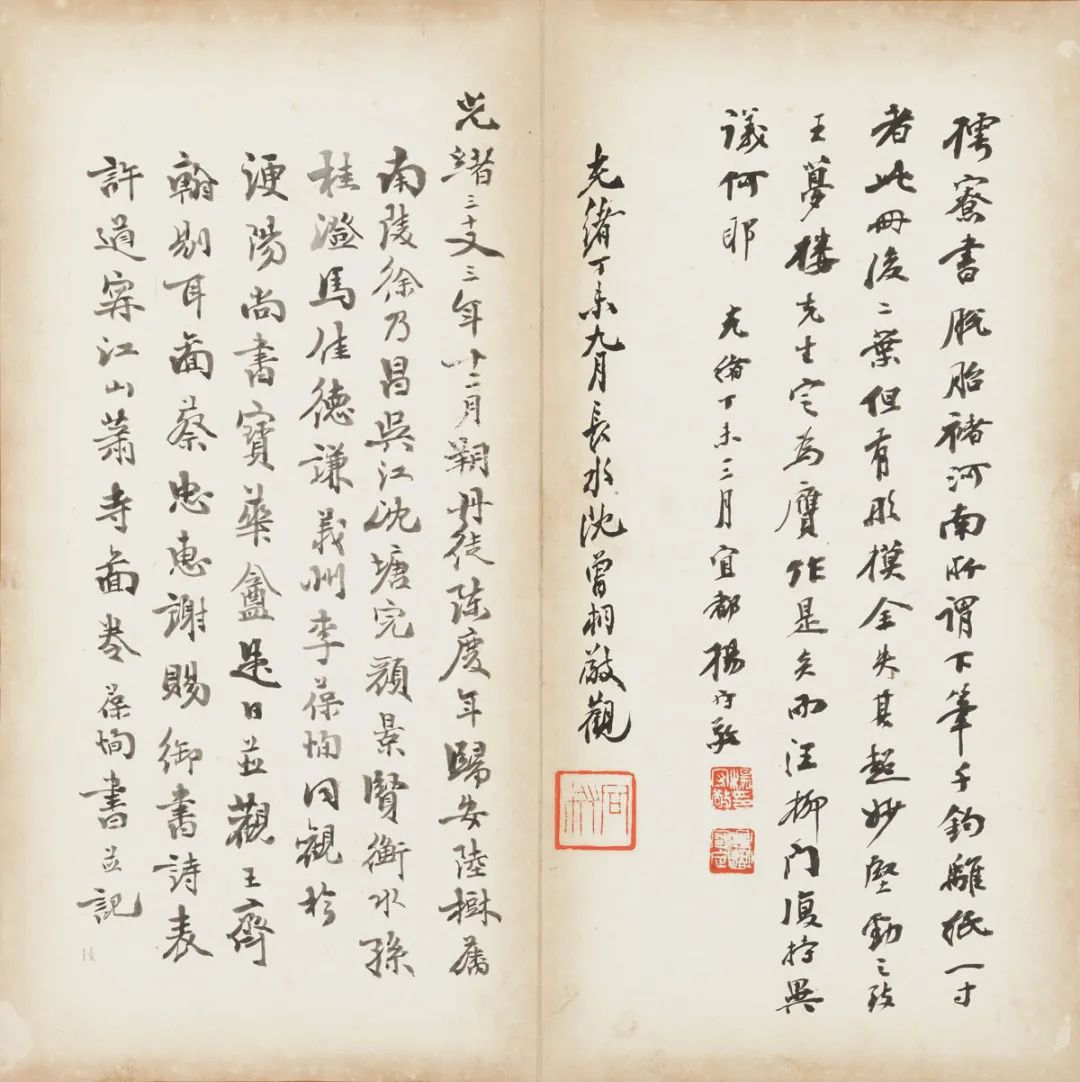 樗寮書脫胎褚河南所謂下筆千鈞離紙一寸
者此冊後二葉但有形模全失其超妙堅勁之致
王夢樓先生定為贗作是矣而汪柳門復持異
議何耶 光緒丁未三月宜都楊守敬
光緒丁未九月長水沈曾桐敬觀
光緒三十又三年十二月朔丹徒陳慶年歸安陸樹藩
南陵徐乃昌吳江沈塘完顏景賢衡水孫
桂澂馬佳德謙義州李葆恂同觀於
浭陽尚書寶華盦是日並觀王齊
翰剔耳圖蔡忠惠謝賜御書詩表
許道寧江山蕭寺圖卷葆恂書並記